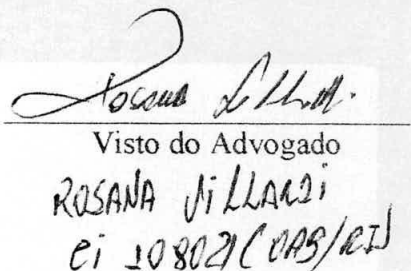 Rosana
Visto do Advogado
ROSANA VILLARDI
CI 108021 (OAB/RJ)